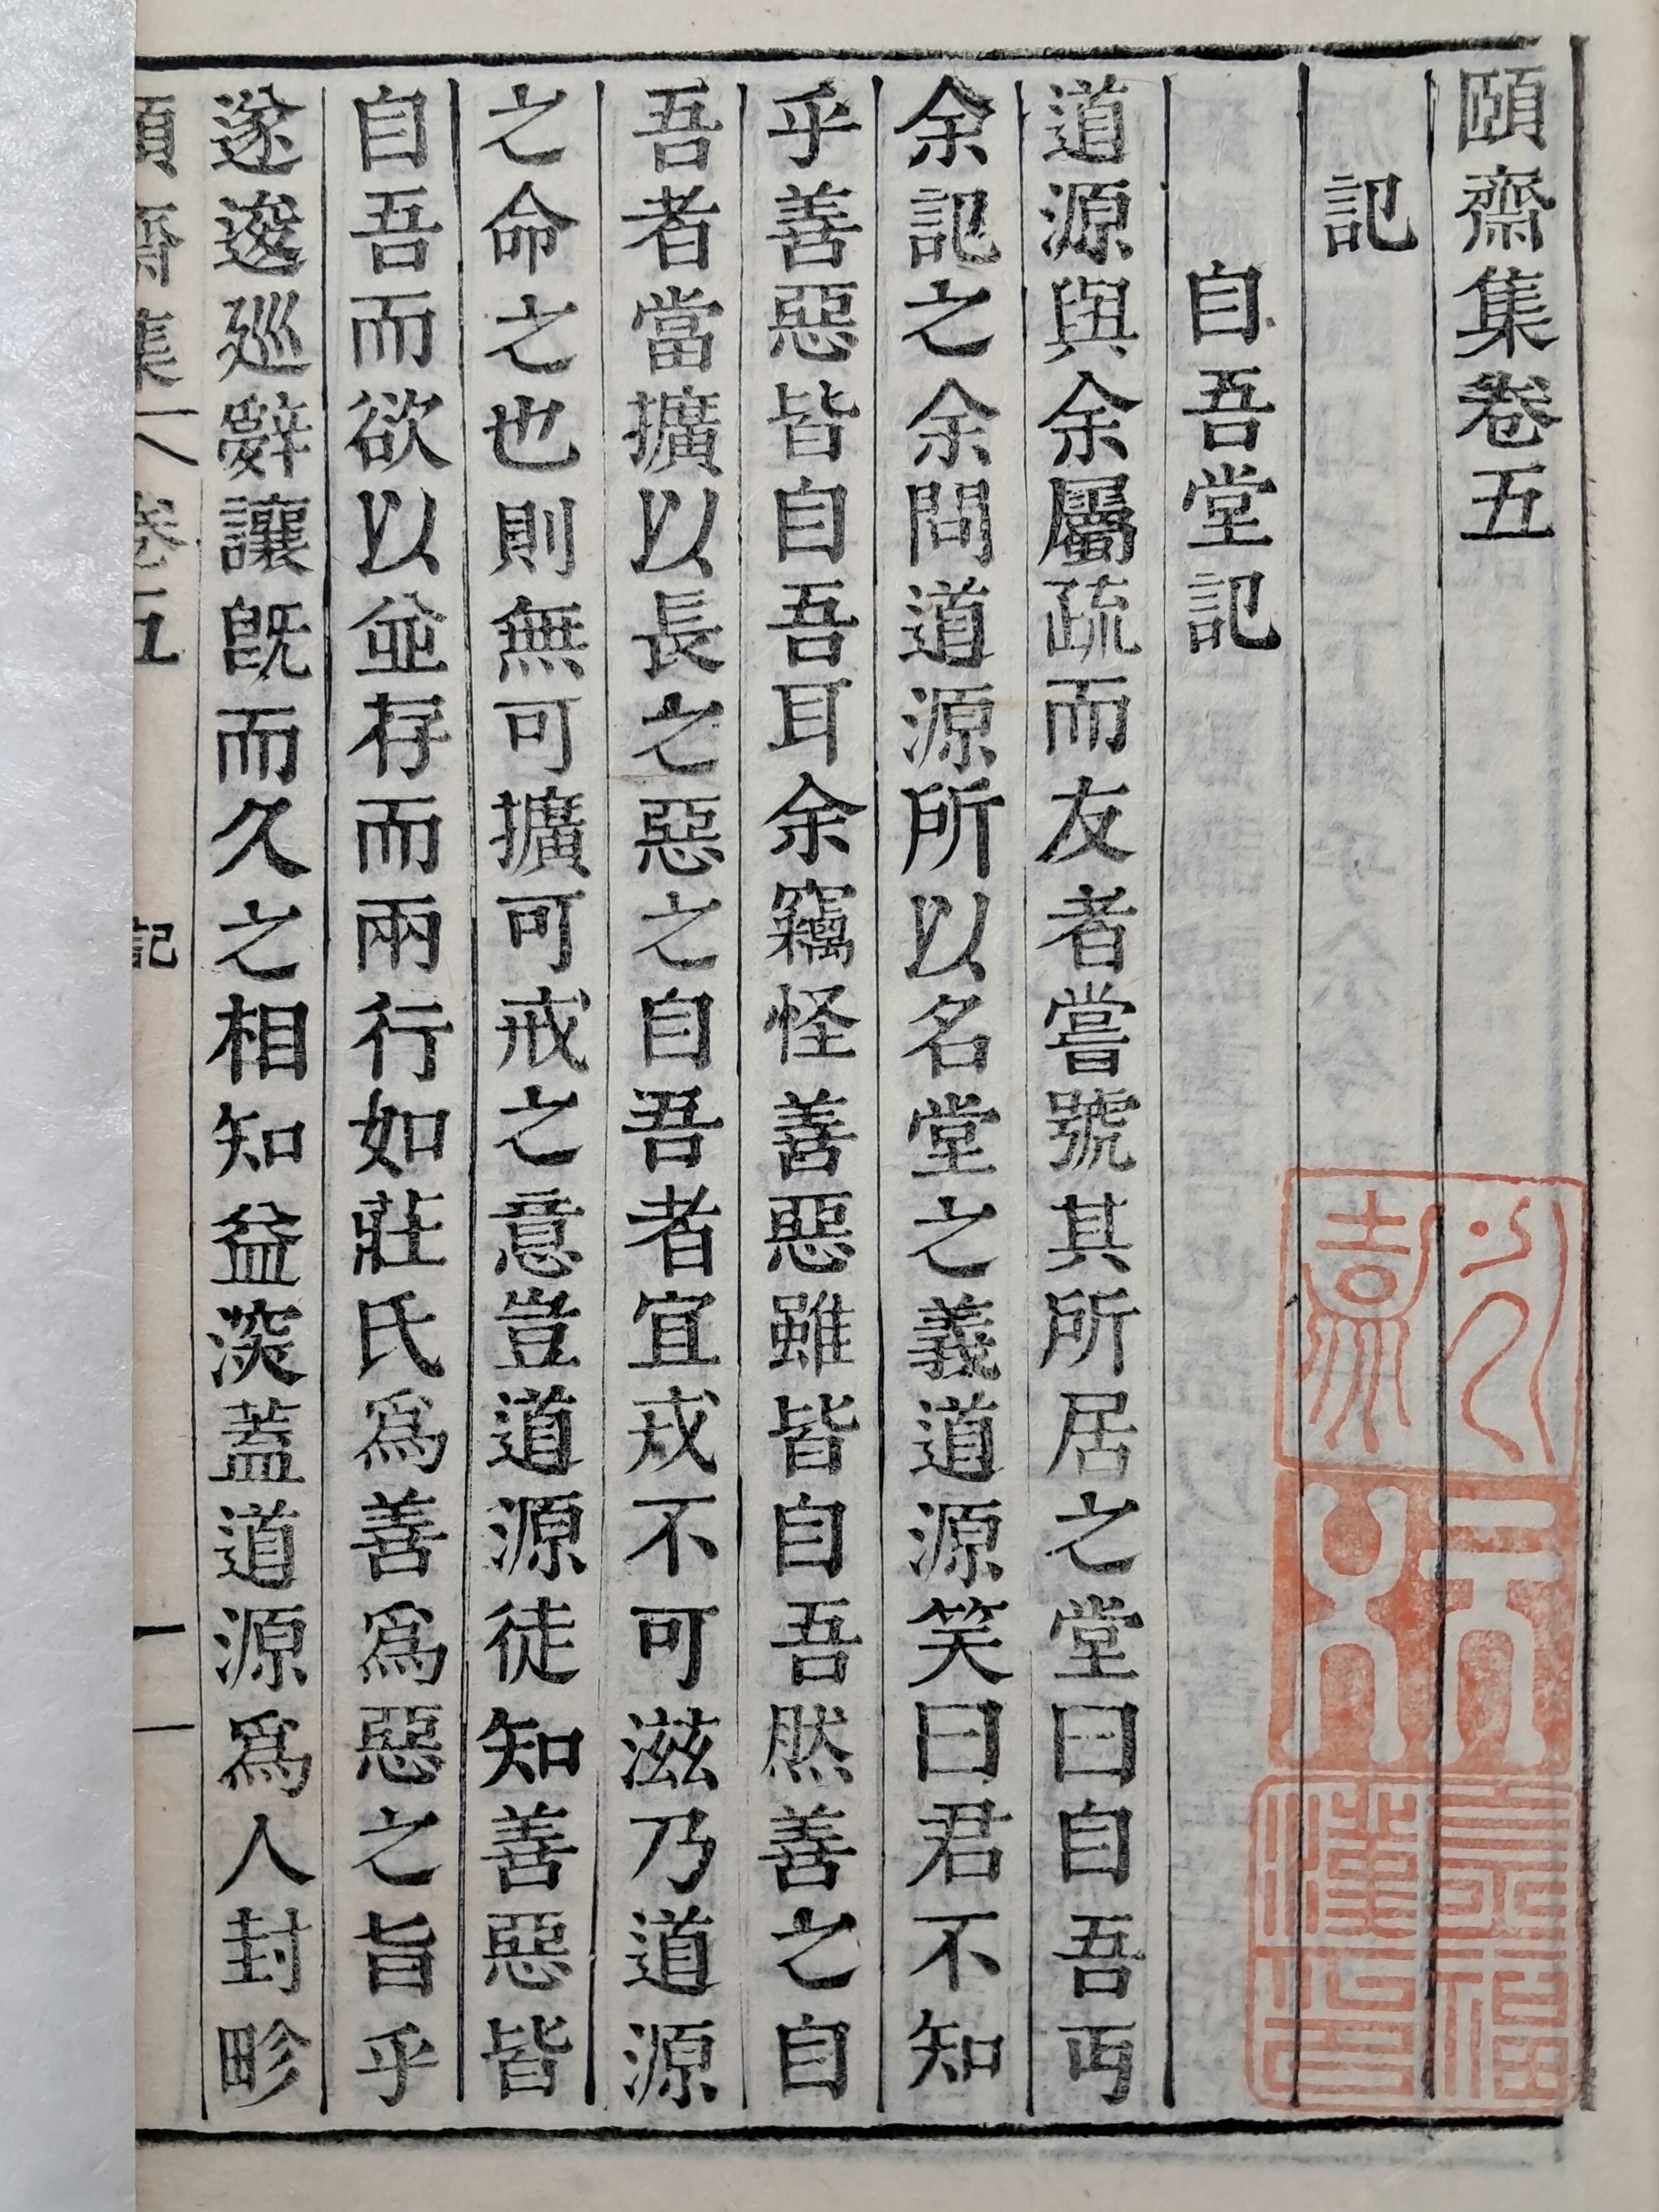 頤齋集卷五
記
自吾堂記
道源與余屬疏而友者嘗號其所居之堂曰自吾丐
余記之余問道源所以名堂之義道源笑曰君不知
乎善惡皆自吾耳余竊怪善惡雖皆自吾然善之自
吾者當擴以長之惡之自吾者宜戒不可滋乃道源
之命之也則無可擴可戒之意豈道源徒知善惡皆
自吾而欲以並存而兩行如莊氏爲善爲惡之旨乎
遂逡巡辭讓旣而久之相知益深蓋道源爲人封畛
頤齋集 卷五 記 一